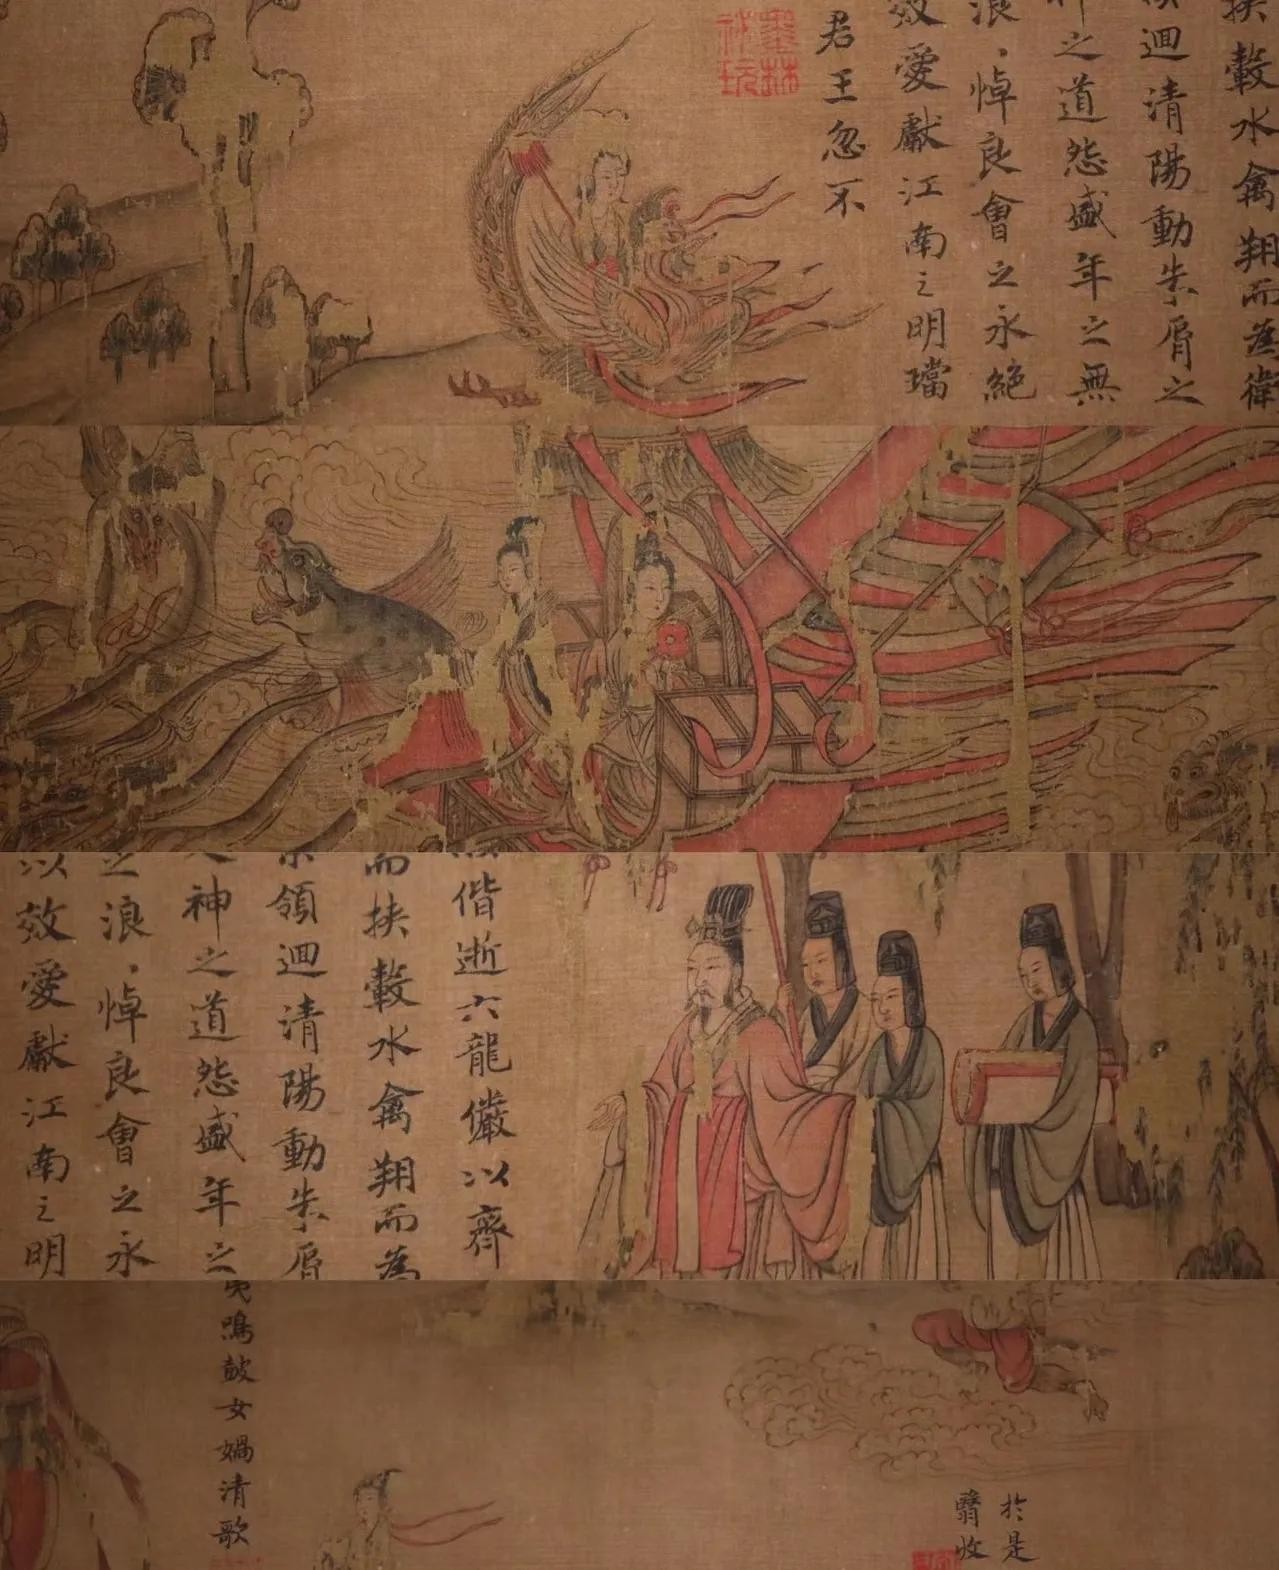 挾轂水禽翔而為衛
領迴清陽動朱脣之
神之道怨盛年之無
浪、悼良會之永絕
效愛獻江南之明璫
君王忽不
墨林
祕玩
偕逝六龍儼以齊
而挾轂水禽翔而為
領迴清陽動朱脣
神之道怨盛年之
之浪、悼良會之永
以效愛獻江南之明
於是
翳收
夷鳴鼓女媧清歌